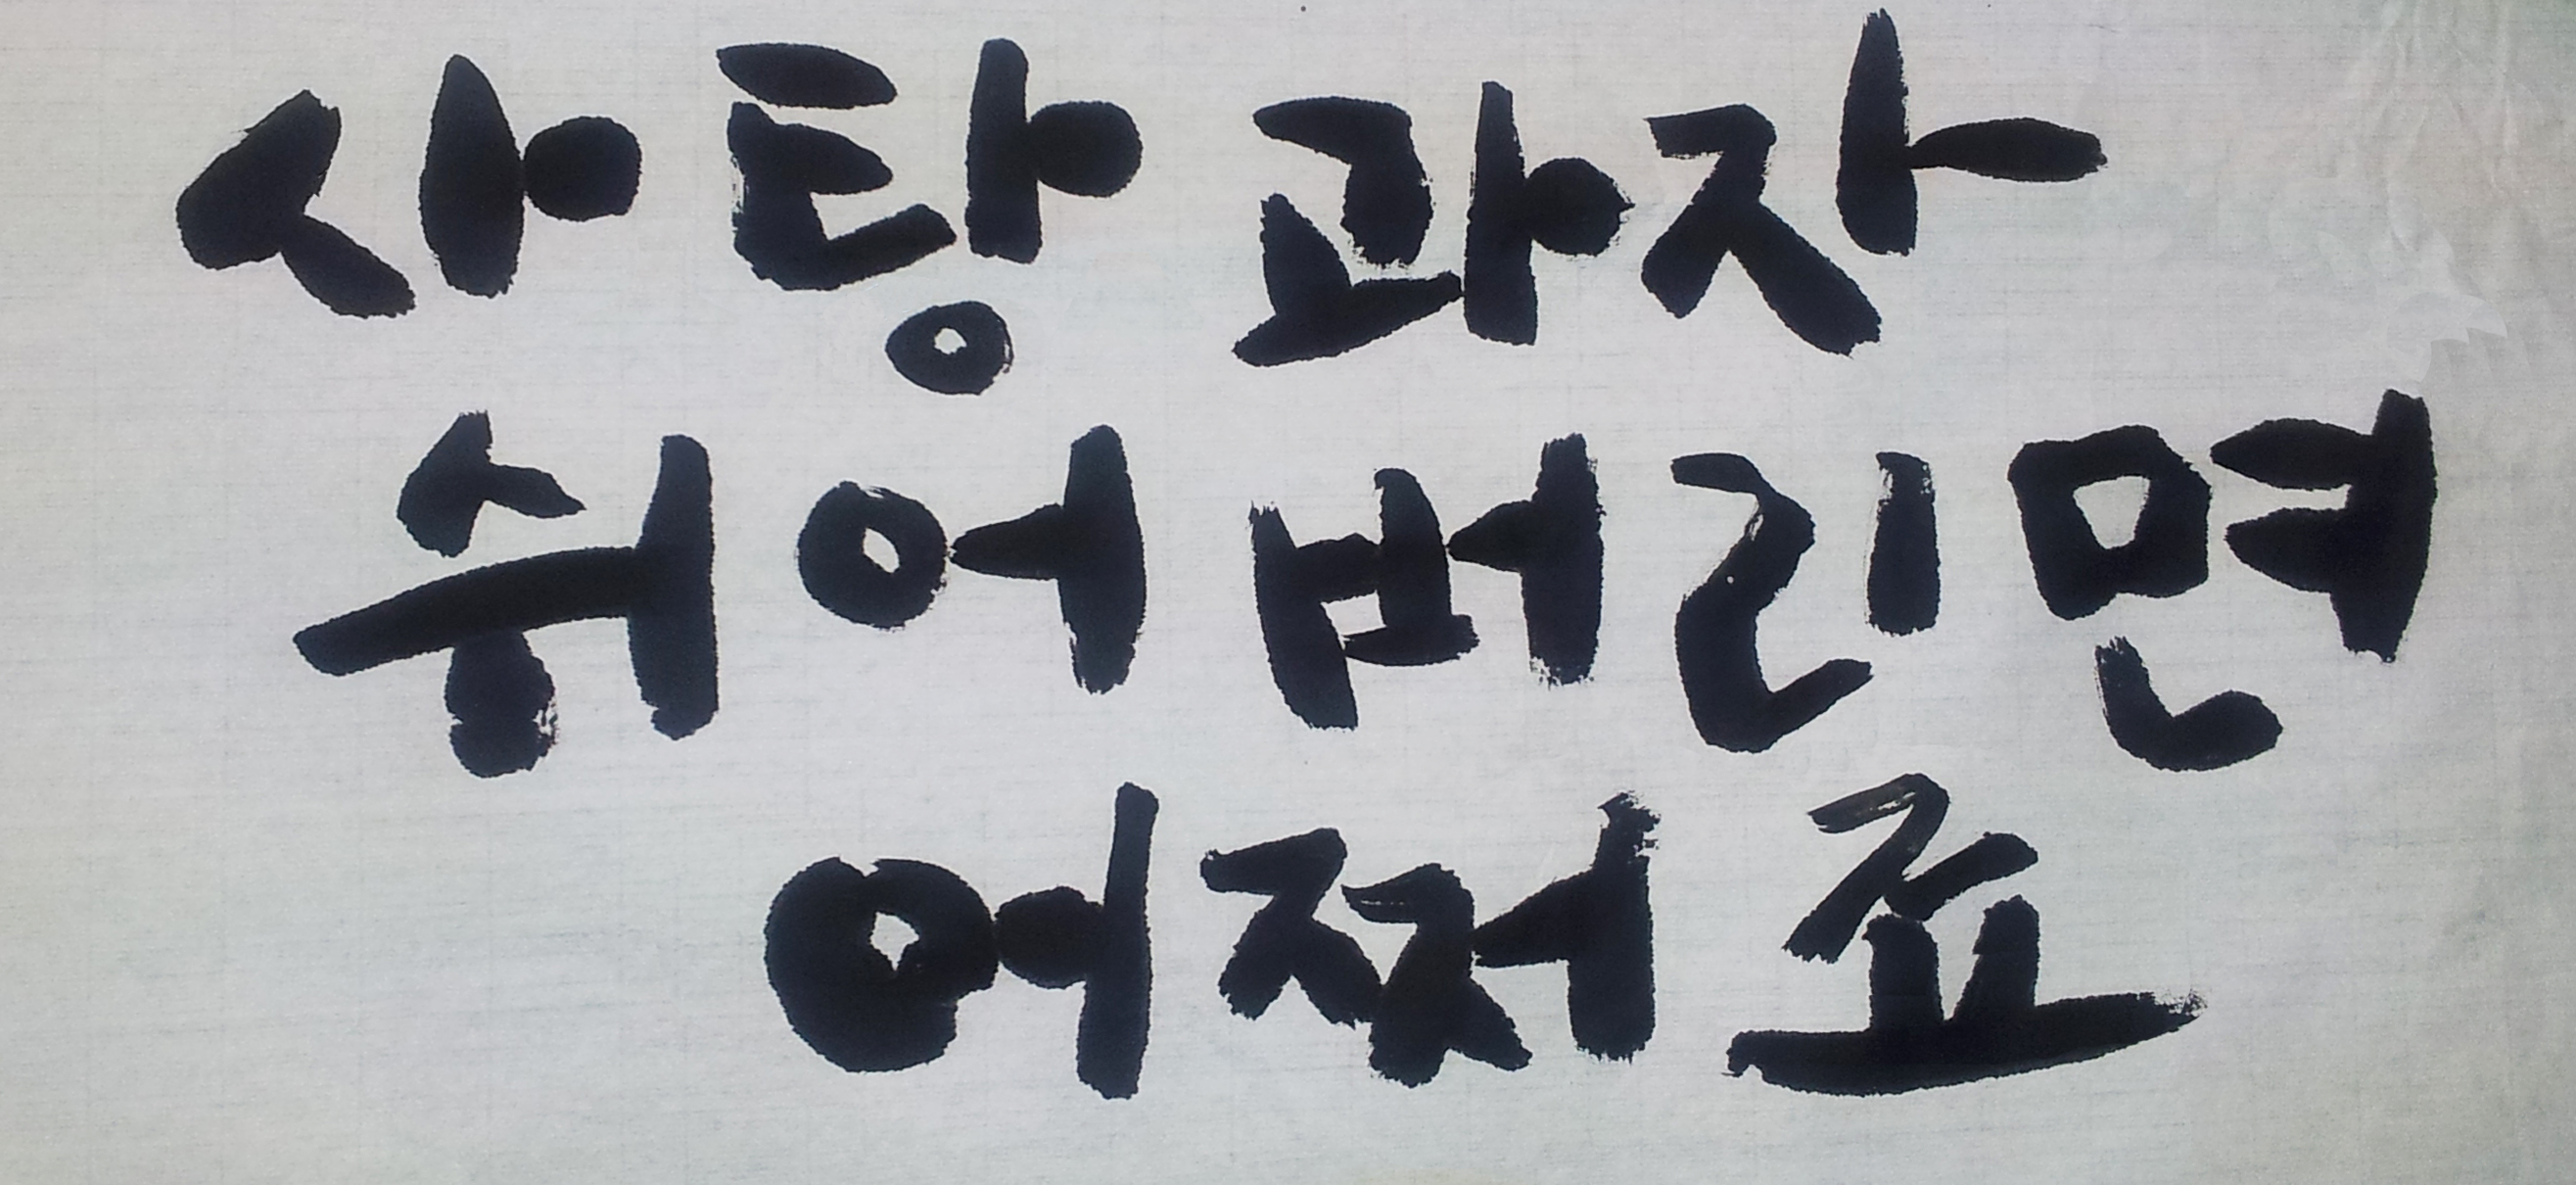 사탕 과자
쉬어 버리면
어쩌죠